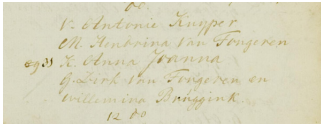 V. Antonie Kuyper
M. Hentrina van Tongeren
K. Anna Joanna
G. Dirk van Tongeren en
Willemina Brüggink